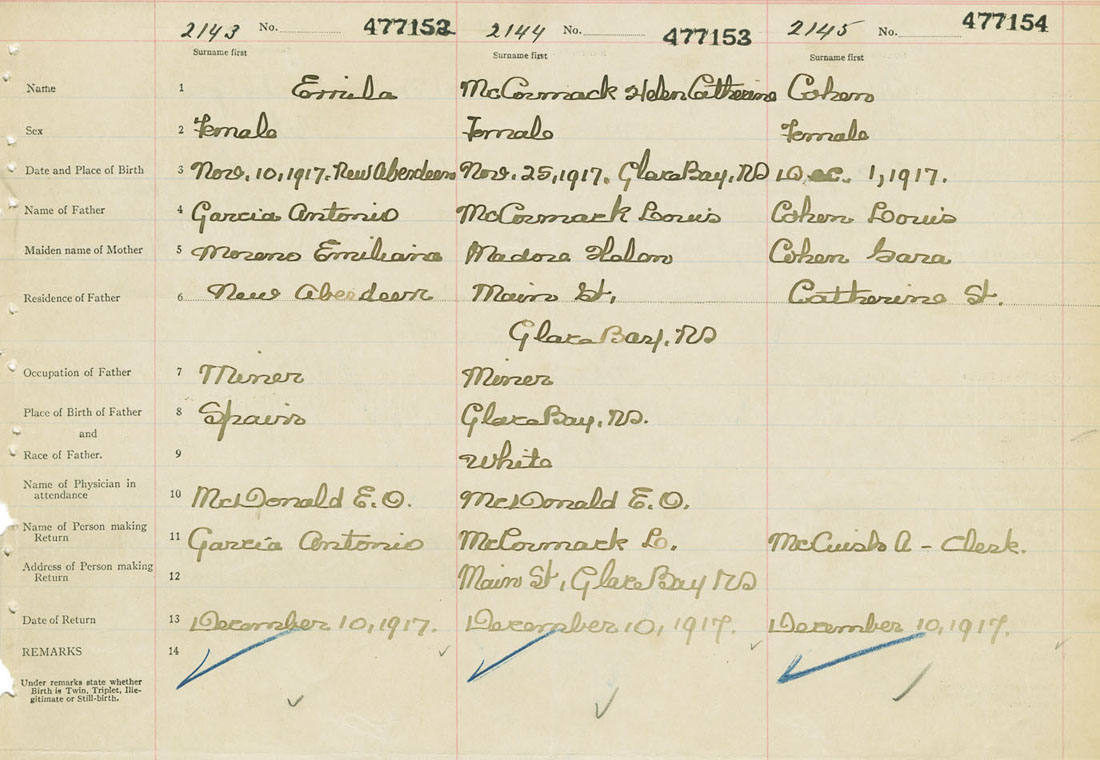 2143 No. 477152 2144 No. 477153 2145 No. 477154
Surname first Surname first Surname first
Name 1 Emila McCormack Helen Catherine Cohen
Sex 2 Female Female Female
Date and Place of Birth 3 Nov. 10, 1917. New Aberdeen Nov. 25, 1917. Glace Bay, NS Dec. 1, 1917.
Name of Father 4 Garcia Antonio McCormack Louis Cohen Louis
Maiden name of Mother 5 Moreno Emiliana Madora Helen Cohen Sara
Residence of Father 6 New Aberdeen Main St, Catherine St.
Glace Bay, NS
Occupation of Father 7 Miner Miner
Place of Birth of Father 8 Spain Glace Bay, NS.
and
Race of Father. 9 White
Name of Physician in
attendance 10 McDonald E. O. McDonald E. O.
Name of Person making
Return 11 Garcia Antonio McCormack Lo. McCuish A - Clerk.
Address of Person making
Return 12 Main St, Glace Bay NS
Date of Return 13 December 10, 1917. December 10, 1917. December 10, 1917.
REMARKS 14
Under remarks state whether
Birth is Twin, Triplet, Ille-
gitimate or Still-birth.